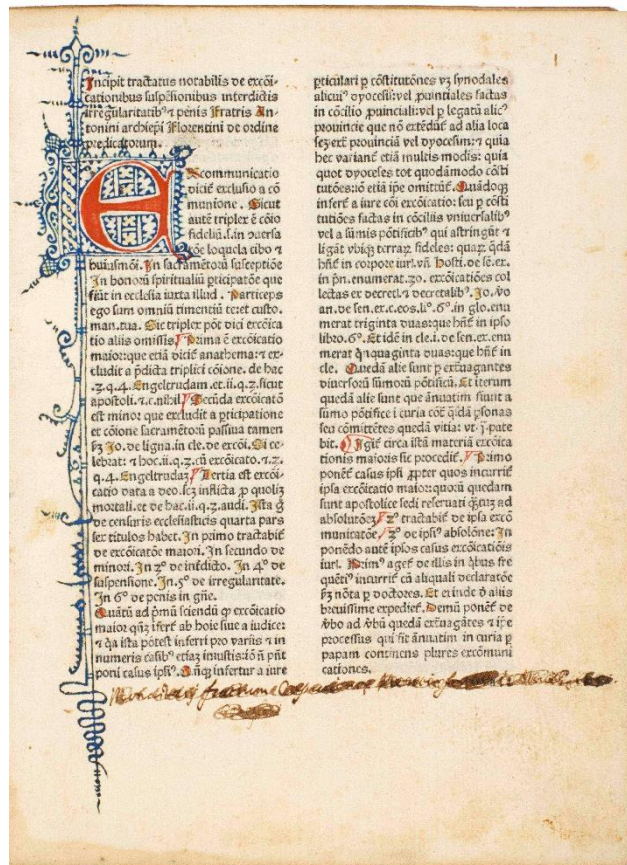 Incipit tractatus notabilis de excōi-
cationibus suspēsionibus interdictis
irregularitatibꝰ ⁊ penis Fratris An-
tonini archiepī Florentini de ordine
predicatorum.
Excommunicatio
diciť exclusio a cō
munione. Sicut
autē triplex ē cōio
fideliū.s.in diuersa
loquela cibo ⁊
huiusmōi. In sacramētorū susceptiōe
In honorū spiritualiū pticipatōe que
fiūt in ecclesia iuxta illud. Particeps
ego sum omniū timentiū te:et custo.
man.tua. Sic triplex pōt dici excōica
tio aliis omissis Prima ē excōicatio
maior:que etiā diciť anathema: ⁊ ex-
cludit a p̄dicta triplici cōione. de hac
.3.q.4. Engeltrudam.et.ii.q.2.sicut
apostoli. ⁊.c.nihil. Secūda excōicatō
est minor que excludit a pticipatione
et cōione sacramētorū passiua tamen
Jo.de ligna.in cle.de excōi. Si ce-
lebrat: ⁊ hoc.ii.q.2.cū excōicato.⁊.2.
q.4.Engeltrudaʒ Tertia est excōi-
catio data a deo.scʒ inflicta p quolis
mortali.et de hac.ii.q.2.audi. Ista
de censuris ecclesiasticis quarta pars
sex titulos habet. In primo tractabiť
de excōicatōe maiori. In secundo de
minori. In 2° de intēdicto. In 4° de
suspensione. In.5° de irregularitate.
In 6° de penis in gn̄e.
Quātū ad p̄mū sciendū ꝙ excōicatio
maior q̄ʒ ab hoīe siue a iudice:
⁊ ista potest inferri pro variis ⁊ in
numeris casibꝰ etiaʒ iniustis:iō n̄ pn̄t
poni casus ipsiꝰ. infertur a iure
pticulari p cōstitutōnes vʒ synodales
alicuiꝰ dyocesis:vel puintiales factas
in cōcilio puinciali:vel p legatū alicꝰ
prouincie que nō extēdūť ad alia loca
prouinciā vel dyocesim: ⁊ quia
hec variant etiā multis modis: quia
quot dyoceses tot quodāmodo cōsti
tutōes:iō etiā ipē omittūť. Quādoqʒ
inferť a iure cōi excōicatio: seu p cōsti
tutiōes factas in cōciliis vniuersalibꝰ
vel a sūmis pōtificibꝰ qui astringūt ⁊
ligāt vbiqʒ terraʒ fideles: quaʒ q̄dā
hn̄ť in corpore iur. Hosti.de sē.ex.
in pn̄.enumerat.30.excōicatiōes col
lectas ex decretꝭ ⁊ decretalibꝰ. Jo.
an.de sen.ex.c.eos.li°.6°.in glo.enu
merat triginta duas:que hn̄ť in ipso
libro.6°. Et idē in cle.i.de sen.ex.enu
merat q̄nquaginta duas:que hn̄ť in
cle. Quedā alie sunt p extrauagantes
diuersorū sūmorū pōtificū. Et iterum
quedā alie sunt que ānuatim fiunt a
sūmo pōtifice i curia cōť q̄dā psonas
seu cōmittētes quedā vitia: vt pate
bit. Igiť circa istā materiā excōica
tionis maioris sic procediť. Primo
ponēť casus ipsi ppter quos incurriť
ipsa excōicatio maior:quorū quedam
sunt apostolice sedi reseruati ad
absolutōeʒ 2° tractabiť de ipsa excō
municatōe. 2° de ipsiꝰ absolōne: In
ponēdo autē ipsos casus excōicatiōis
iuri. Primꝰ ageť de illis in q̄bus fre
quētiꝰ incurriť cū aliquali declaratōe
nōta p doctores. Et exinde ō aliis
breuissime expedieť. Demū ponēť de
vbo ad vbū quedā extrauagātes ⁊ ipe
processus qui fiť ānuatim in curia p
papam continens plures excōmuni
cationes.